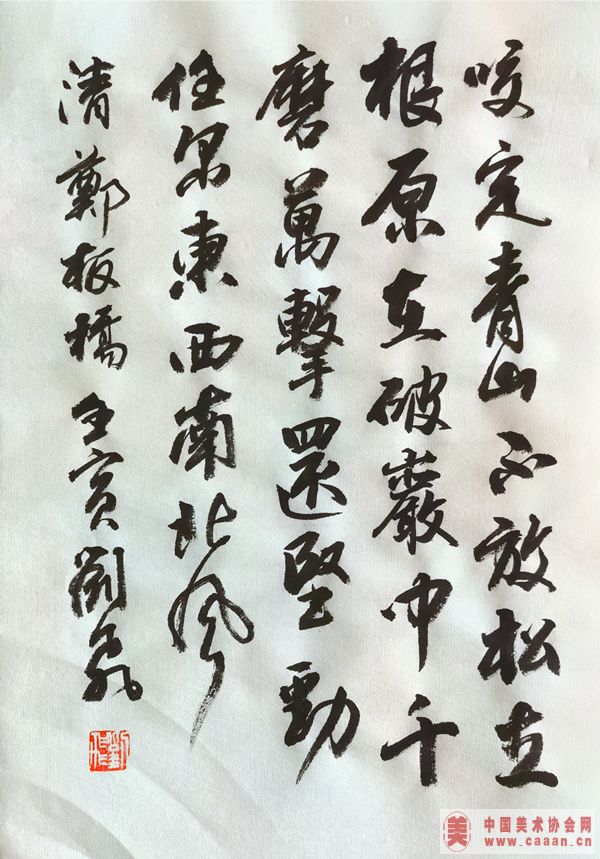 咬定青山不放松立
根原在破巖中千
磨萬擊還堅勁
任尔東西南北风
清鄭板橋 壬寅劉
美 中国美术协会网
www.caaan.cn